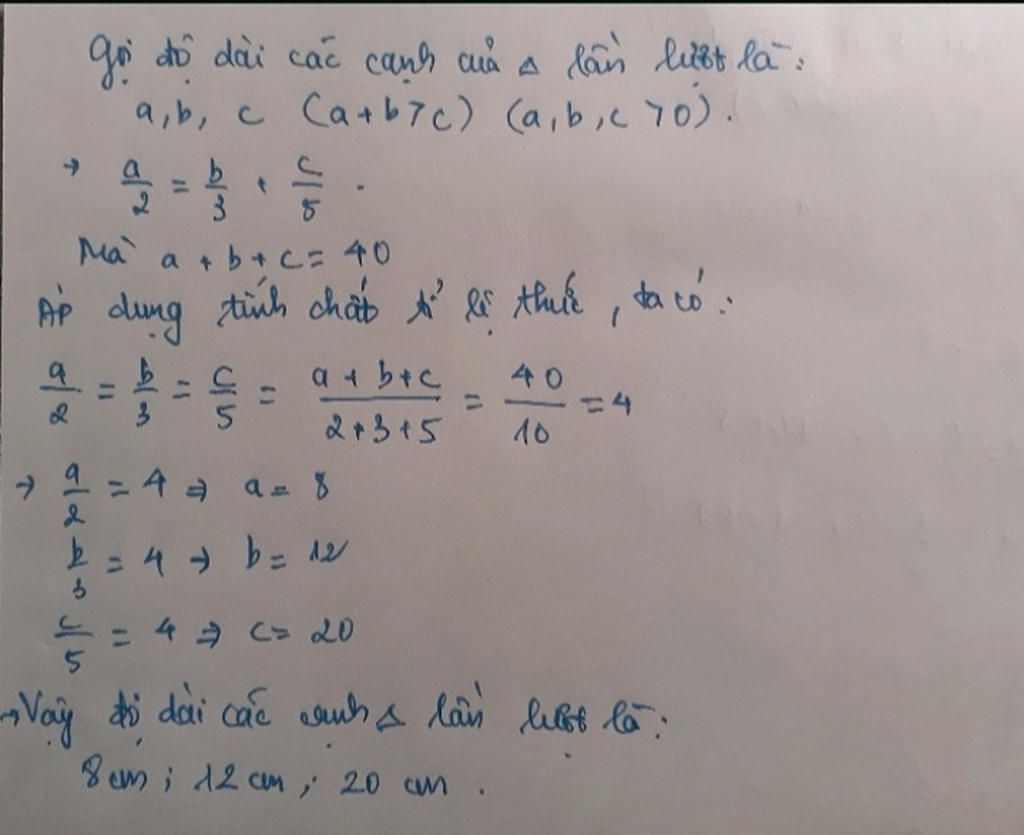 Gọi độ dài các cạnh của Δ lần lượt là:
a, b, c (a+b>c) (a,b,c >0).
→ a/2 = b/3 + c/5.
Mà a + b + c = 40
Áp dụng tính chất tỉ lệ thức, ta có:
a/2 = b/3 = c/5 = (a+b+c)/(2+3+5) = 40/10 = 4
→ a/2 = 4 ⇒ a = 8
b/3 = 4 → b = 12
c/5 = 4 ⇒ c = 20
→ Vậy độ dài các cạnh Δ lần lượt là:
8cm; 12cm; 20 cm.